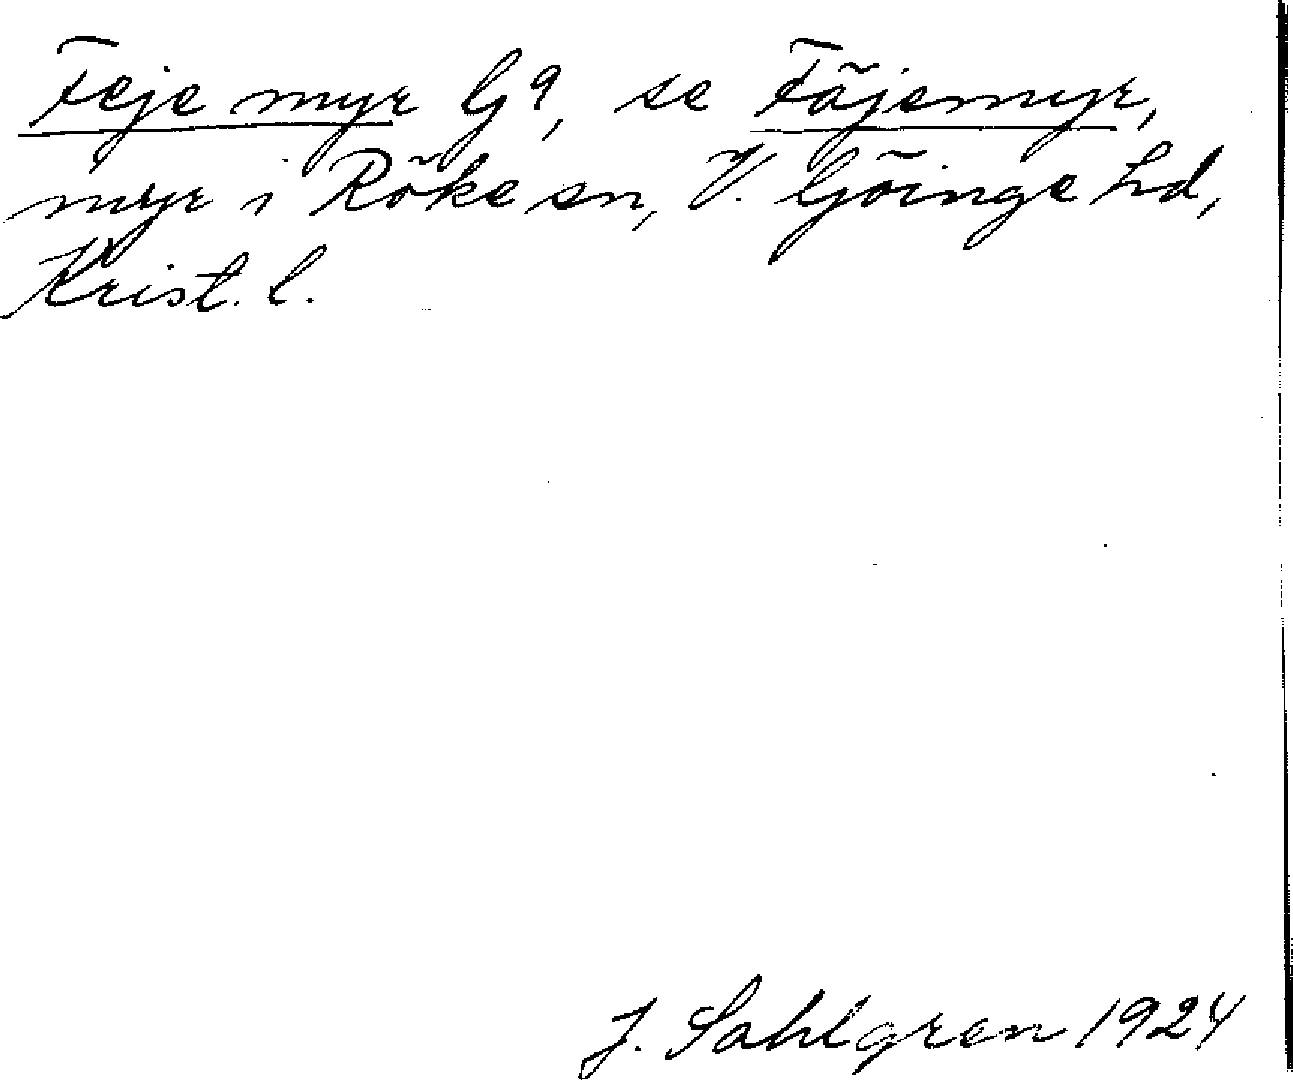 Feje myr Gª, se Fäjemyr,
myr i Röke sn, V. Göinge hd,
Krist. l.
J. Sahlgren 1924